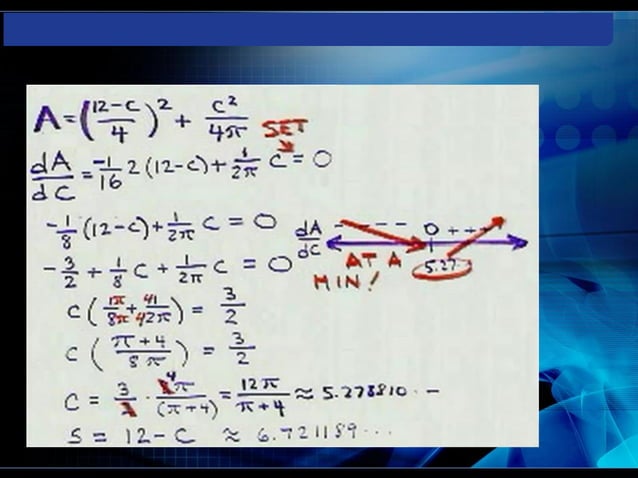 A = (12-C/4)² + C²/4π
SET
dA/dC = -1/16 2(12-C) + 1/2π C = 0
-1/8 (12-C) + 1/2π C = 0
dA/dC - - - - 0 + + +
5.27
AT A MIN!
-3/2 + 1/8 C + 1/2π C = 0
C (1π/8π + 41/42π) = 3/2
C (π+4/8π) = 3/2
C = 3/2 · 8π/(π+4) = 12π/π+4 ≈ 5.278810 · –
S = 12 - C ≈ 6.721189...